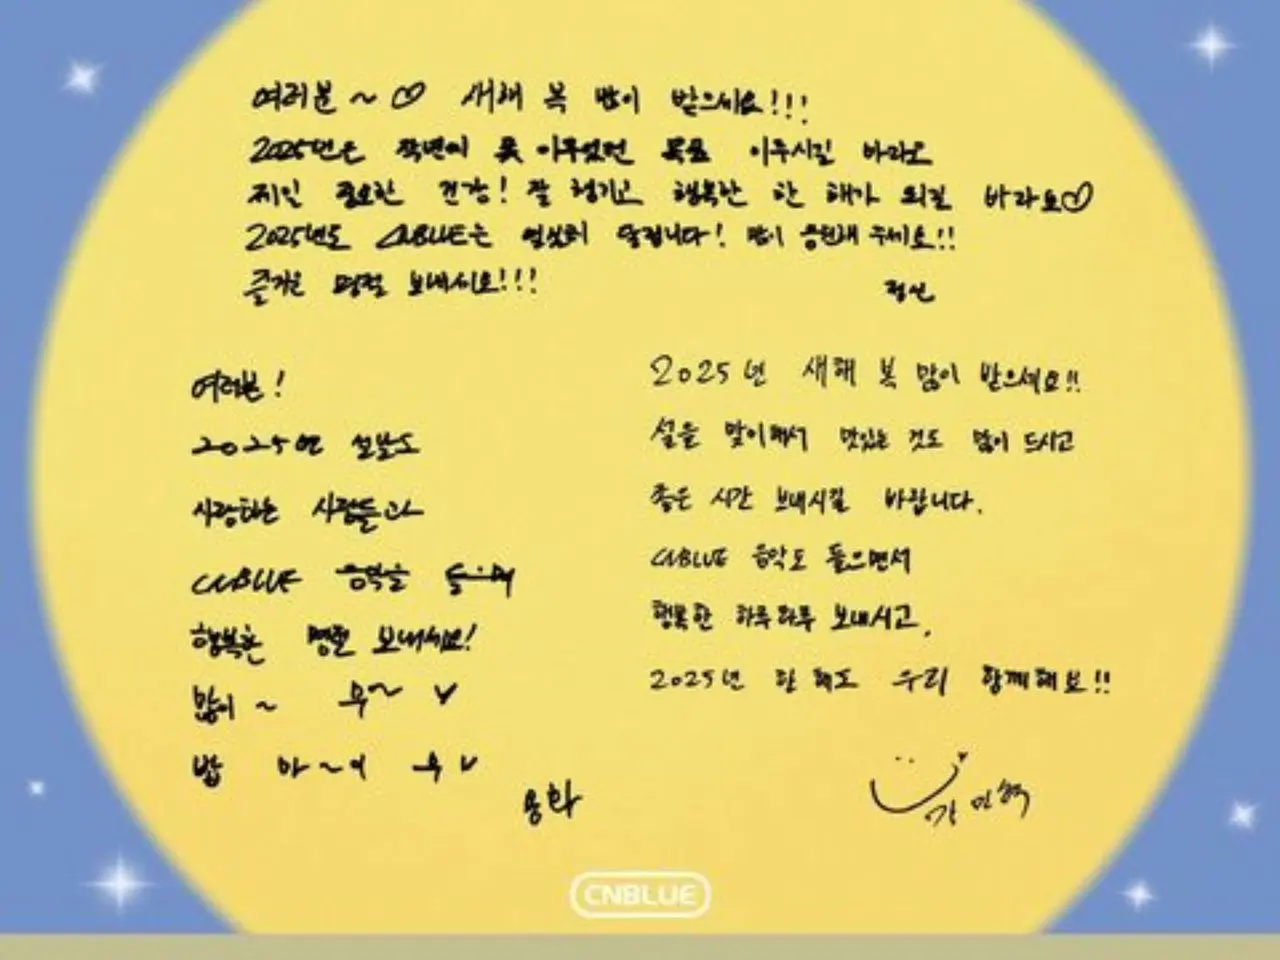 여러분~♡ 새해 복 많이 받으세요!!!
2025년은 작년에 못 이루었던 목표 이루시길 바라고
제일 중요한 건강! 잘 챙기고 행복한 한 해가 되길 바라요♡
2025년도 CNBLUE는 열심히 달립니다! 많이 응원해 주세요!!
즐거운 명절 보내세요!!!
정신
여러분!
2025년 설날도
사랑하는 사람들과
CNBLUE 음악을
행복한 명절 보내세요!
많이~
밥
용화
2025년 새해 복 많이 받으세요!!
설을 맞이해서 맛있는 것도 많이 드시고
좋은 시간 보내시길 바랍니다.
CNBLUE 음악도 들으면서
행복한 하루하루 보내시고,
2025년 한 해도 우리 함께해요!!
강민혁
CNBLUE